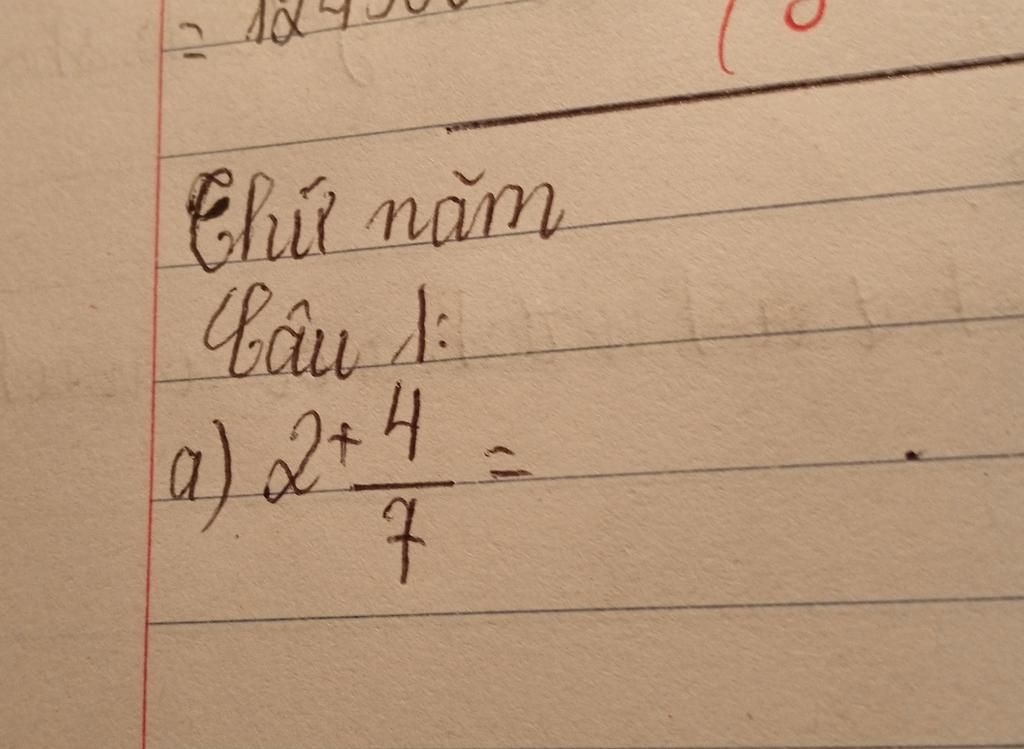 Thứ năm
Câu 1:
a) 2 + 4/7 =